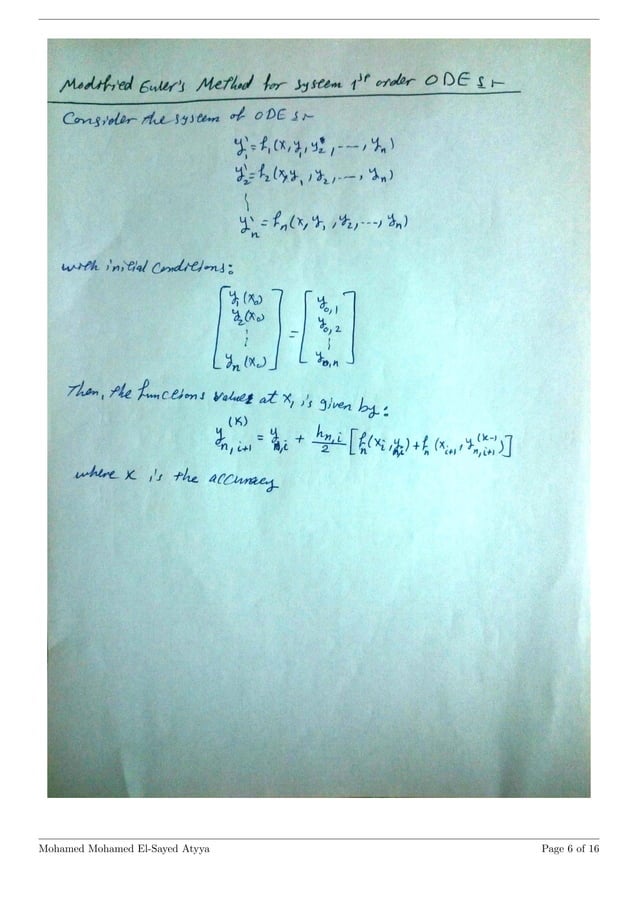 Modified Euler's Method for system 1st order ODEs :-
Consider the system of ODEs :-
y₁` = f₁(x, y₁, y₂, ---, yₙ)
y₂` = f₂(x, y₁, y₂, ---, yₙ)
⋮
yₙ` = fₙ(x, y₁, y₂, ---, yₙ)
with initial Conditions:
[y₁(x₀) y₂(x₀) ⋮ yₙ(x₀)] = [y₀,₁ y₀,₂ ⋮ y₀,ₙ]
Then, the functions values at x, is given by:
y_{n,i+1}^{(K)} = y_{n,i} + h_{n,i}/2 [f_n(x_i, y_{n,i}) + f_n(x_{i+1}, y_{n,i+1}^{(K-1)})]
where K is the accuracy
Mohamed Mohamed El-Sayed Atyya Page 6 of 16